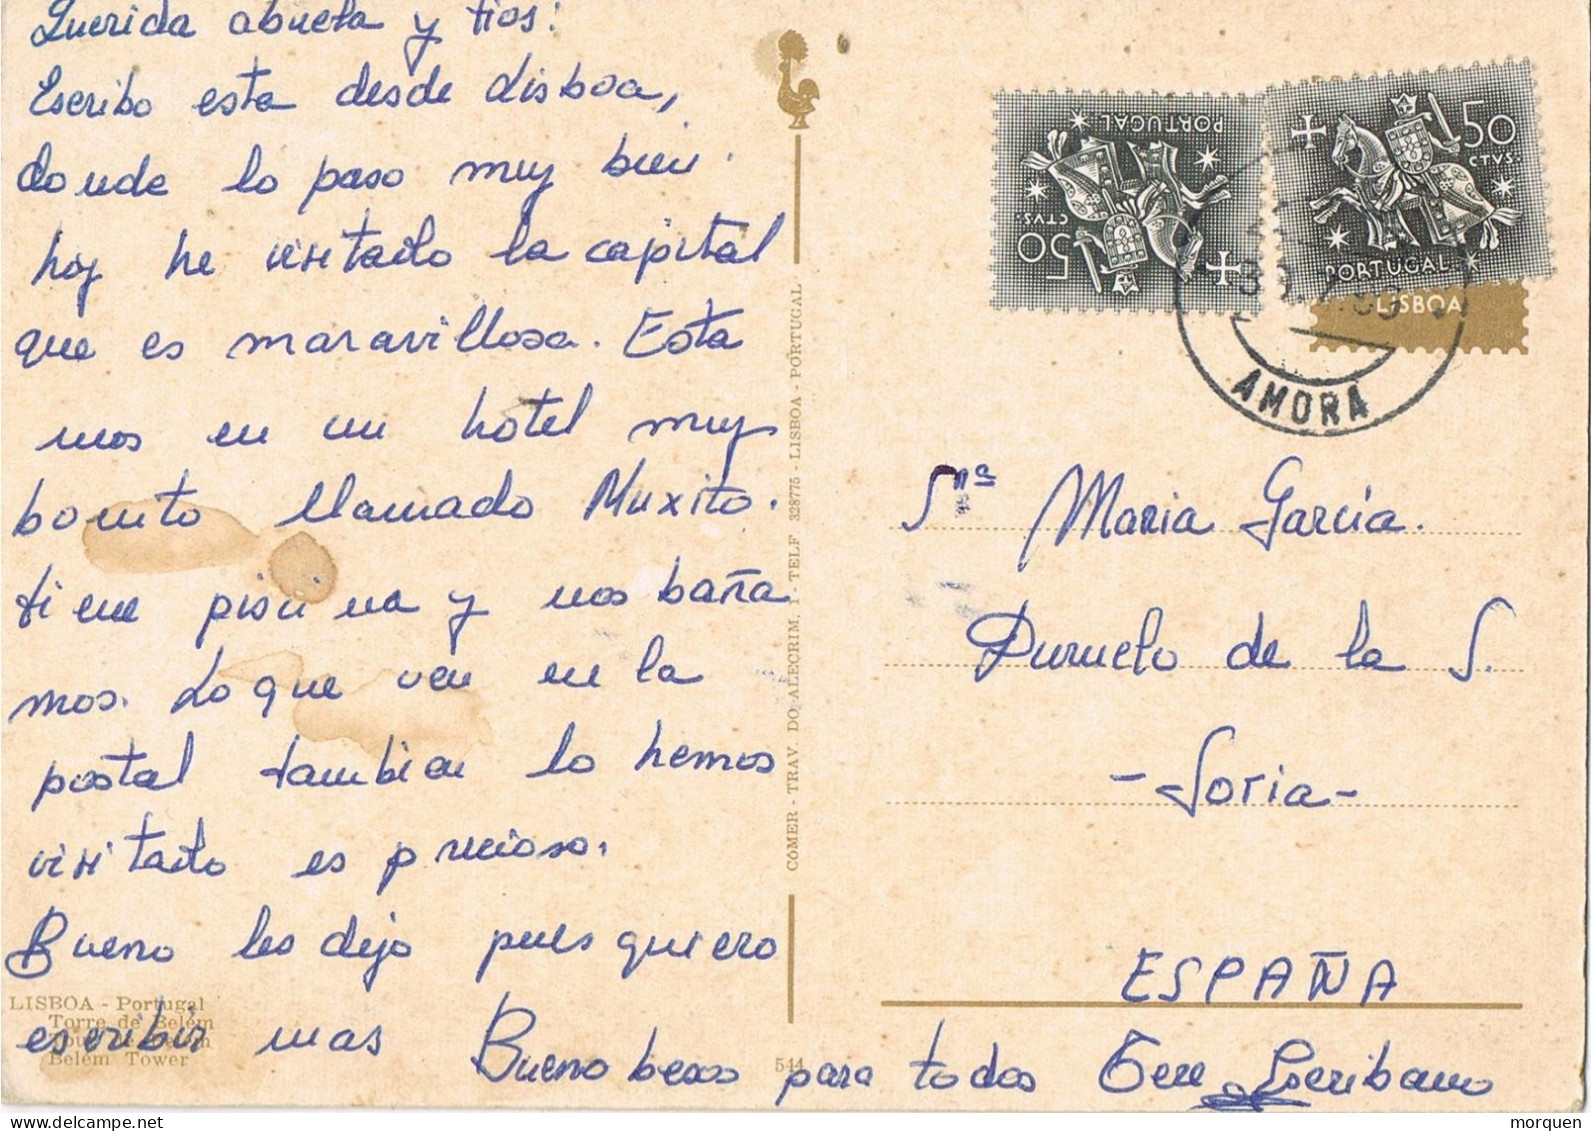 Querida abuela y tios:
Escribo esta desde Lisboa,
donde lo paso muy bien.
hoy he visitado la capital
que es maravillosa. Esta
mos en un hotel muy
bonito llamado Muxito.
tiene piscina y nos baña
mos. Lo que ven en la
postal tambien lo hemos
visitado es precioso.
Bueno les dejo pues quiero
escribir mas
Bueno besos para todos
LISBOA - Portugal
Torre de Belém
Tour de Belém
Belém Tower
544
COMER - TRAV. DO ALECRIM, 1 - TELF 328775 - LISBOA - PORTUGAL
PORTUGAL
50
CTVS.
50
CTVS.
PORTUGAL
LISBOA
AMORA
Sra Maria García.
Duruelo de la S.
- Soria -
ESPAÑA
Escribano
morquen